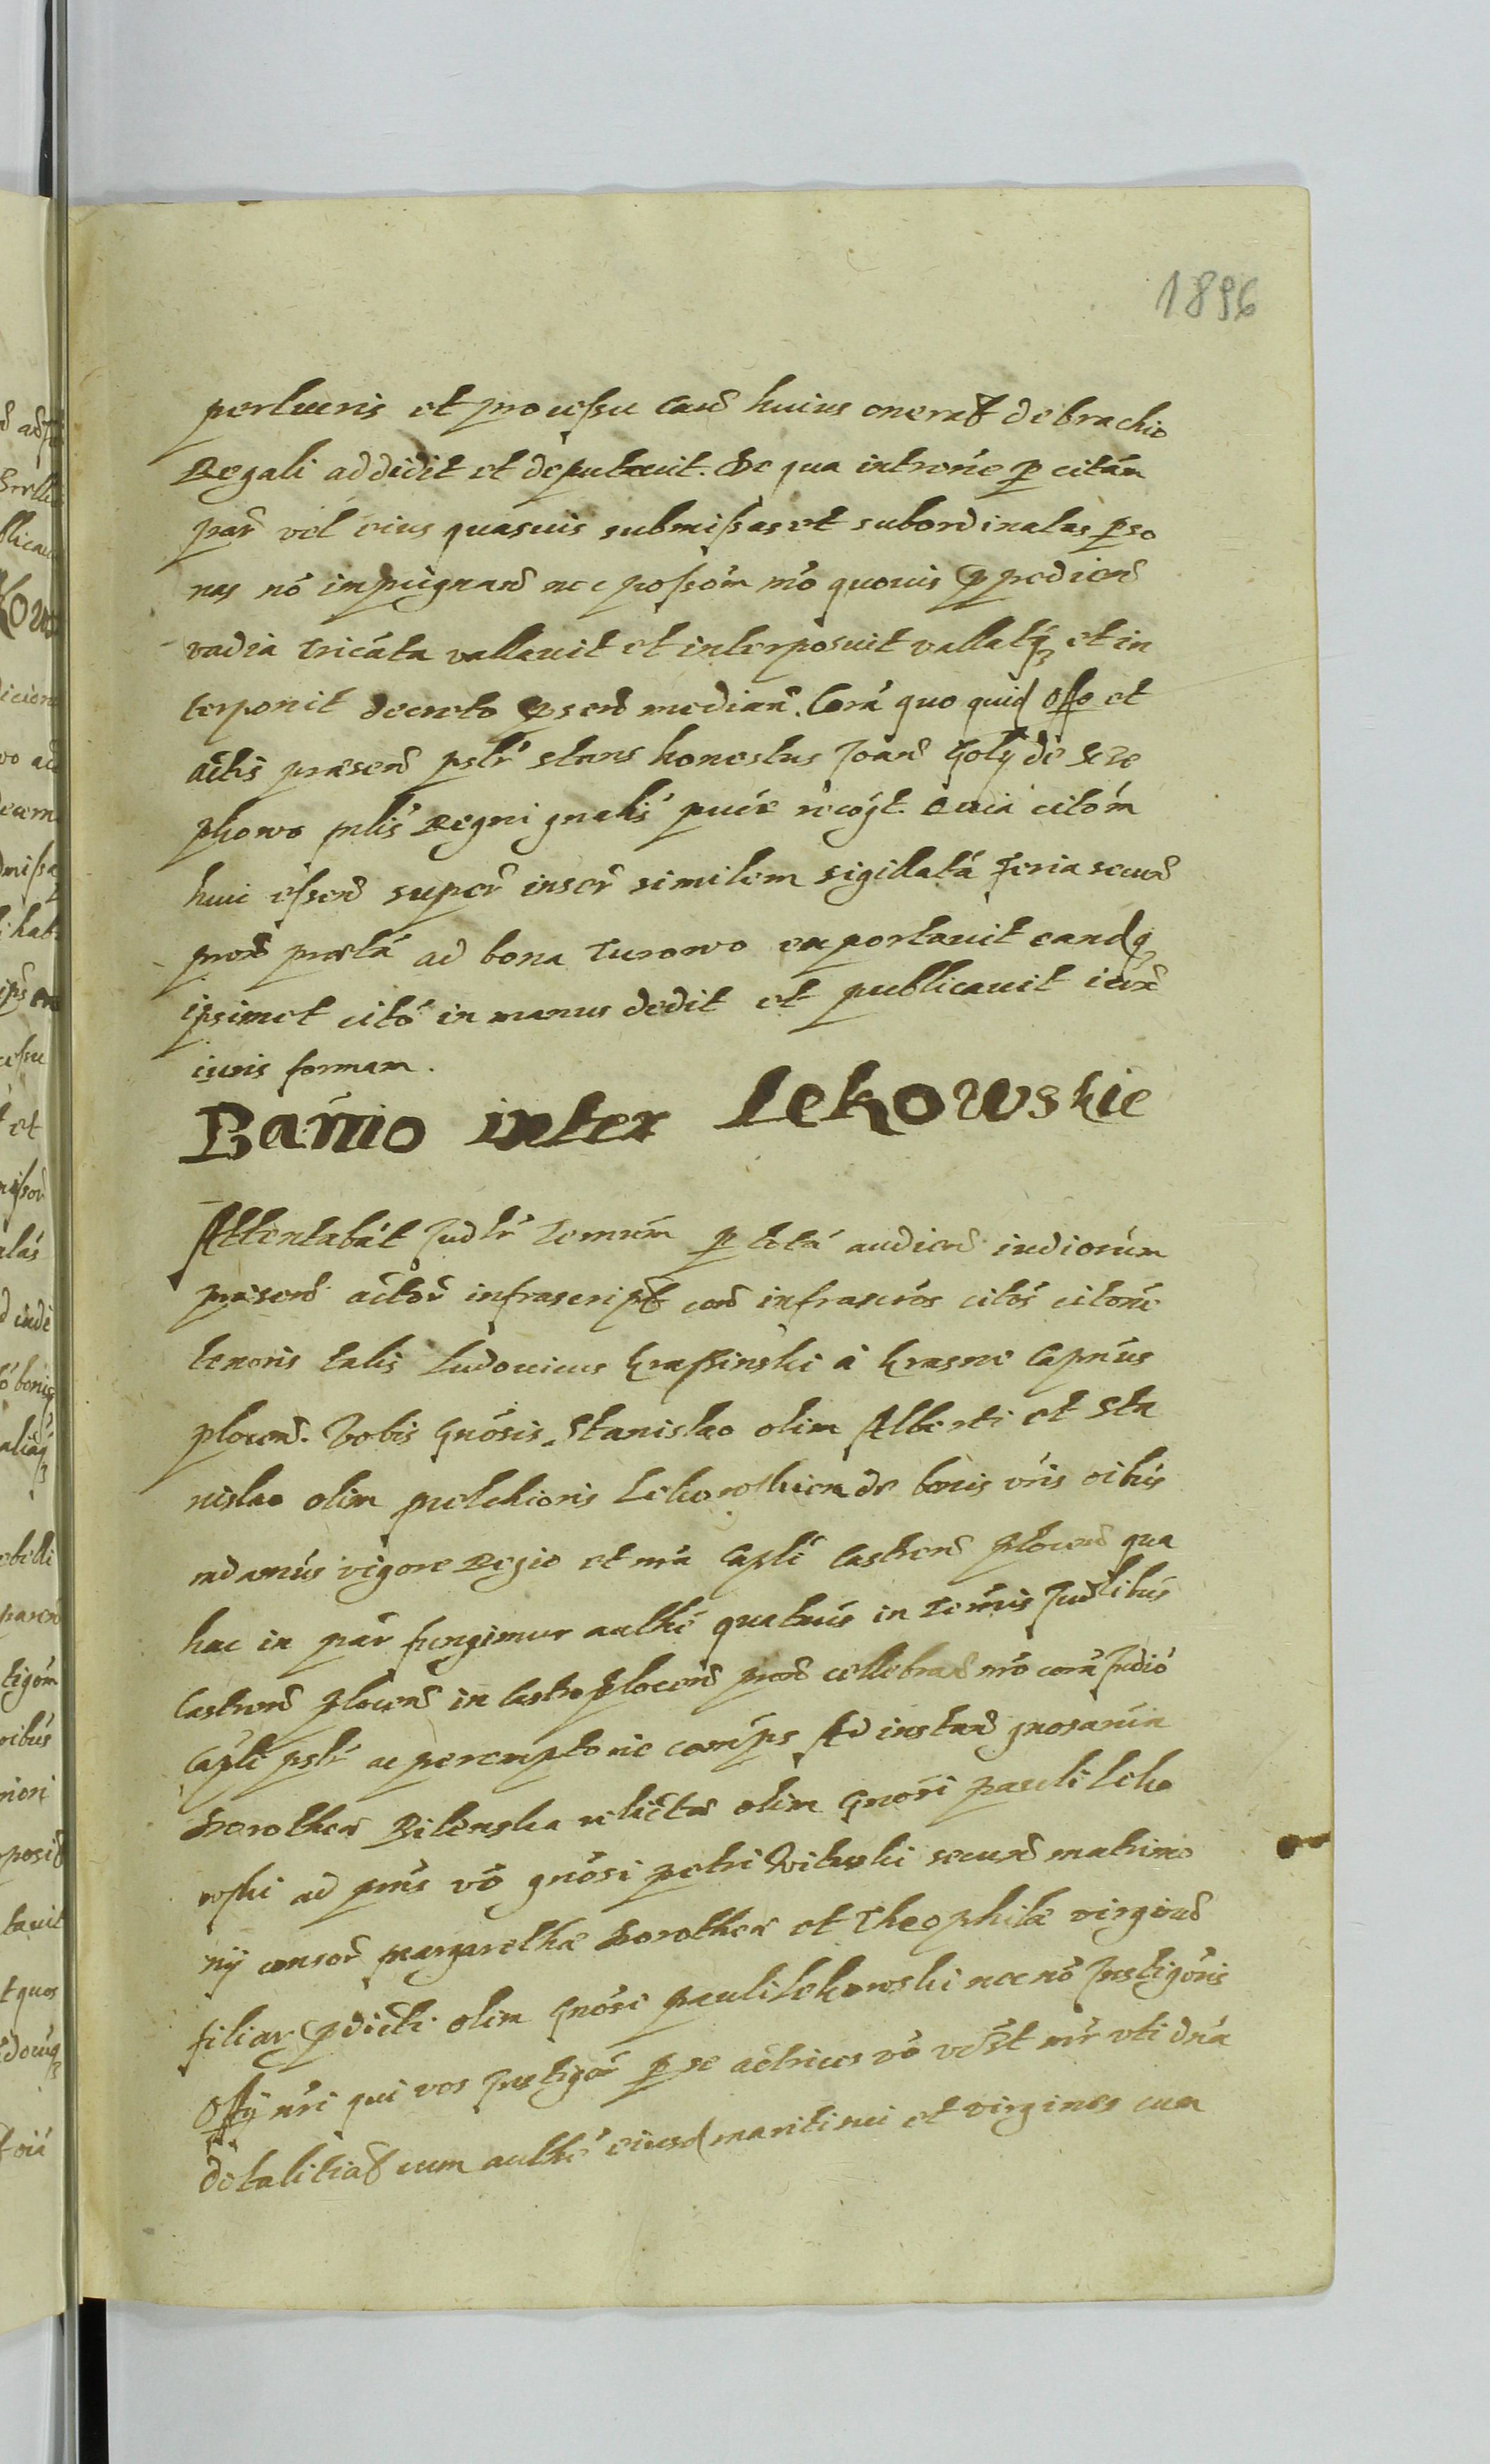 1896
perlucris et processu caus huius onerat de brachio
Regali addidit et deputavit. De qua introne p citam
par vel eius quasuis submissas et subordinatas p so
nas nó inpugnand nec possom mó quovis p pediend
vadia tricáta vallavit et interposuit vallatq et in
terponit decreto p send median. Corá quo quid offo et
actis præsend pslr stans honestus Joand Goly de
phowo mlis Regni gnalis puće recogt. Quia citóm
huic essend super inser similem sigillatá feria secund
prox præta ad bona Turowo exportavit eandq
ipsimet citó in manus dedit et publicavit iux
iuris formam.
Banió inter Lekowskie
Attentabát Judlr Termm p totá audiend iudiorúm
præsend actor infrascript con infrascros citós citone
tenoris talis Ludovicus Krassinski á Krasne Capneus
plocen. Vobis Gnósis Stanislao olim Alberti et Sta
nislao olim Melchioris Lekowskiem de bonis vris oibus
mdamús vigore Regio et nrá Capli Castrend plocend qua
hac in pár fungimur authe quatnús in Termis Judlibus
Castrend plocend in Castro plocend prox cellebrand mó corá Judió
Capli pslr ac peremptorie compś Ad instand gnosarum
Dorothea Bilenska relictæ olim Gnósi Pauli Leko
wski ad pnús vó gnósi petri Witwski secund matrimo
nij consor Margarethæ Dorotheæ et Theophilæ virginú
filiar pdicti olim Gnósi Pauli Lekowski nec nó Instigóris
Offij nri qui vos Instigár p se actrices vó vdst mr vti dná
dotalitiaß cum authe eiusd mariti sui et virgines cum